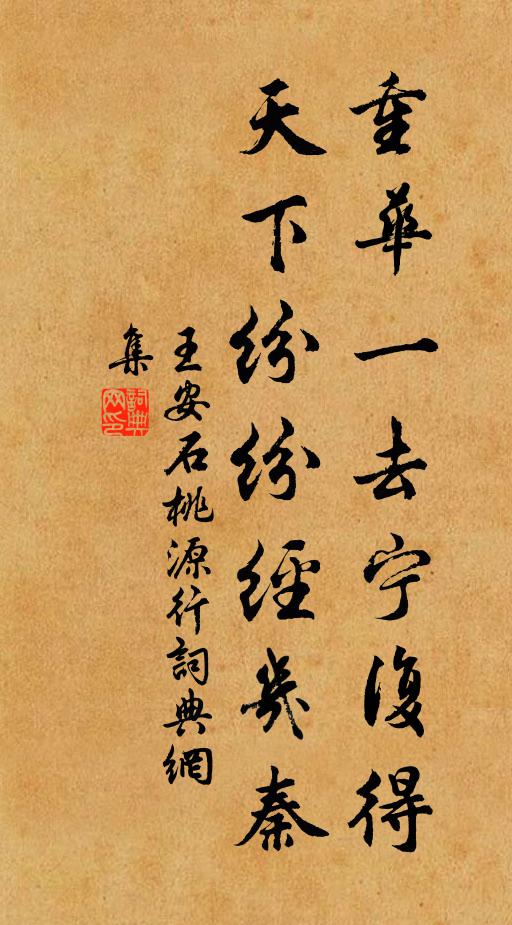 重華一去宁復得
天下纷纷經幾秦
王安石桃源行詞典網
集
詞典
网印